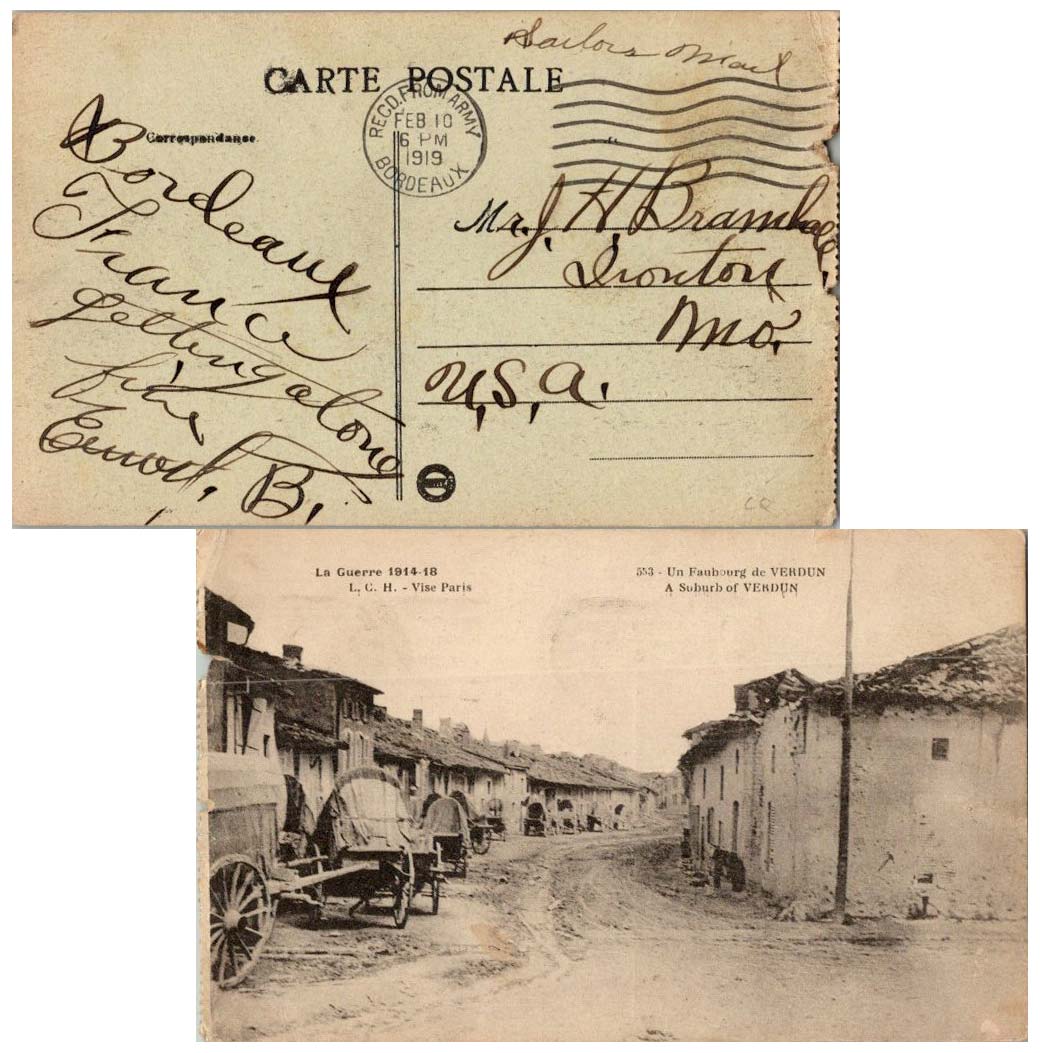 Sailors Mail
CARTE POSTALE
Correspondance.
REC'D. FROM ARMY
FEB 10
6 PM
1919
BORDEAUX
Bordeaux
France
Getting along
fine
Enoch. B.
Mr. J. H. Bramhall,
Ironton
Mo.
U.S.A.
La Guerre 1914-18
L. C. H. - Vise Paris
553 - Un Faubourg de VERDUN
A Suburb of VERDUN